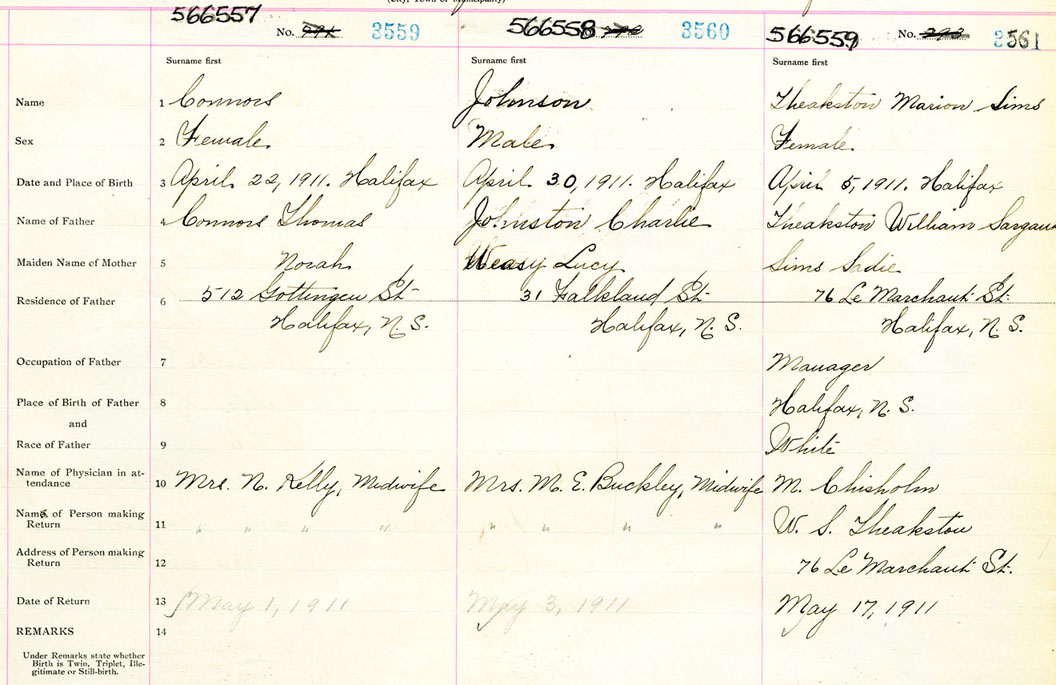 (City, Town or Municipality)
566557 No. 3559 566558 3560 566559 No. 293 3561
Surname first Surname first Surname first
Name 1 Connors Johnson Theakston Marion Sims
Sex 2 Female Male Female
Date and Place of Birth 3 April 22, 1911. Halifax April 30, 1911. Halifax April 5, 1911. Halifax
Name of Father 4 Connors Thomas Johnston Charlie Theakston William Sargau
Maiden Name of Mother 5 Norah Weasy Lucy Sims Sadie
Residence of Father 6 512 Gottingen St. 31 Falkland St. 76 Le Marchant St.
Halifax, N.S. Halifax, N.S. Halifax, N.S.
Occupation of Father 7 Manager
Place of Birth of Father 8 Halifax, N.S.
and
Race of Father 9 White
Name of Physician in at-
tendance 10 Mrs. N. Kelly, Midwife Mrs. M. E. Buckley, Midwife M. Chisholm
Name of Person making
Return 11 " " " " " " " " W. S. Theakston
Address of Person making
Return 12 76 Le Marchant St.
Date of Return 13 May 1, 1911 May 3, 1911 May 17, 1911
REMARKS 14
Under Remarks state whether
Birth is Twin, Triplet, Ille-
gitimate or Still-birth.